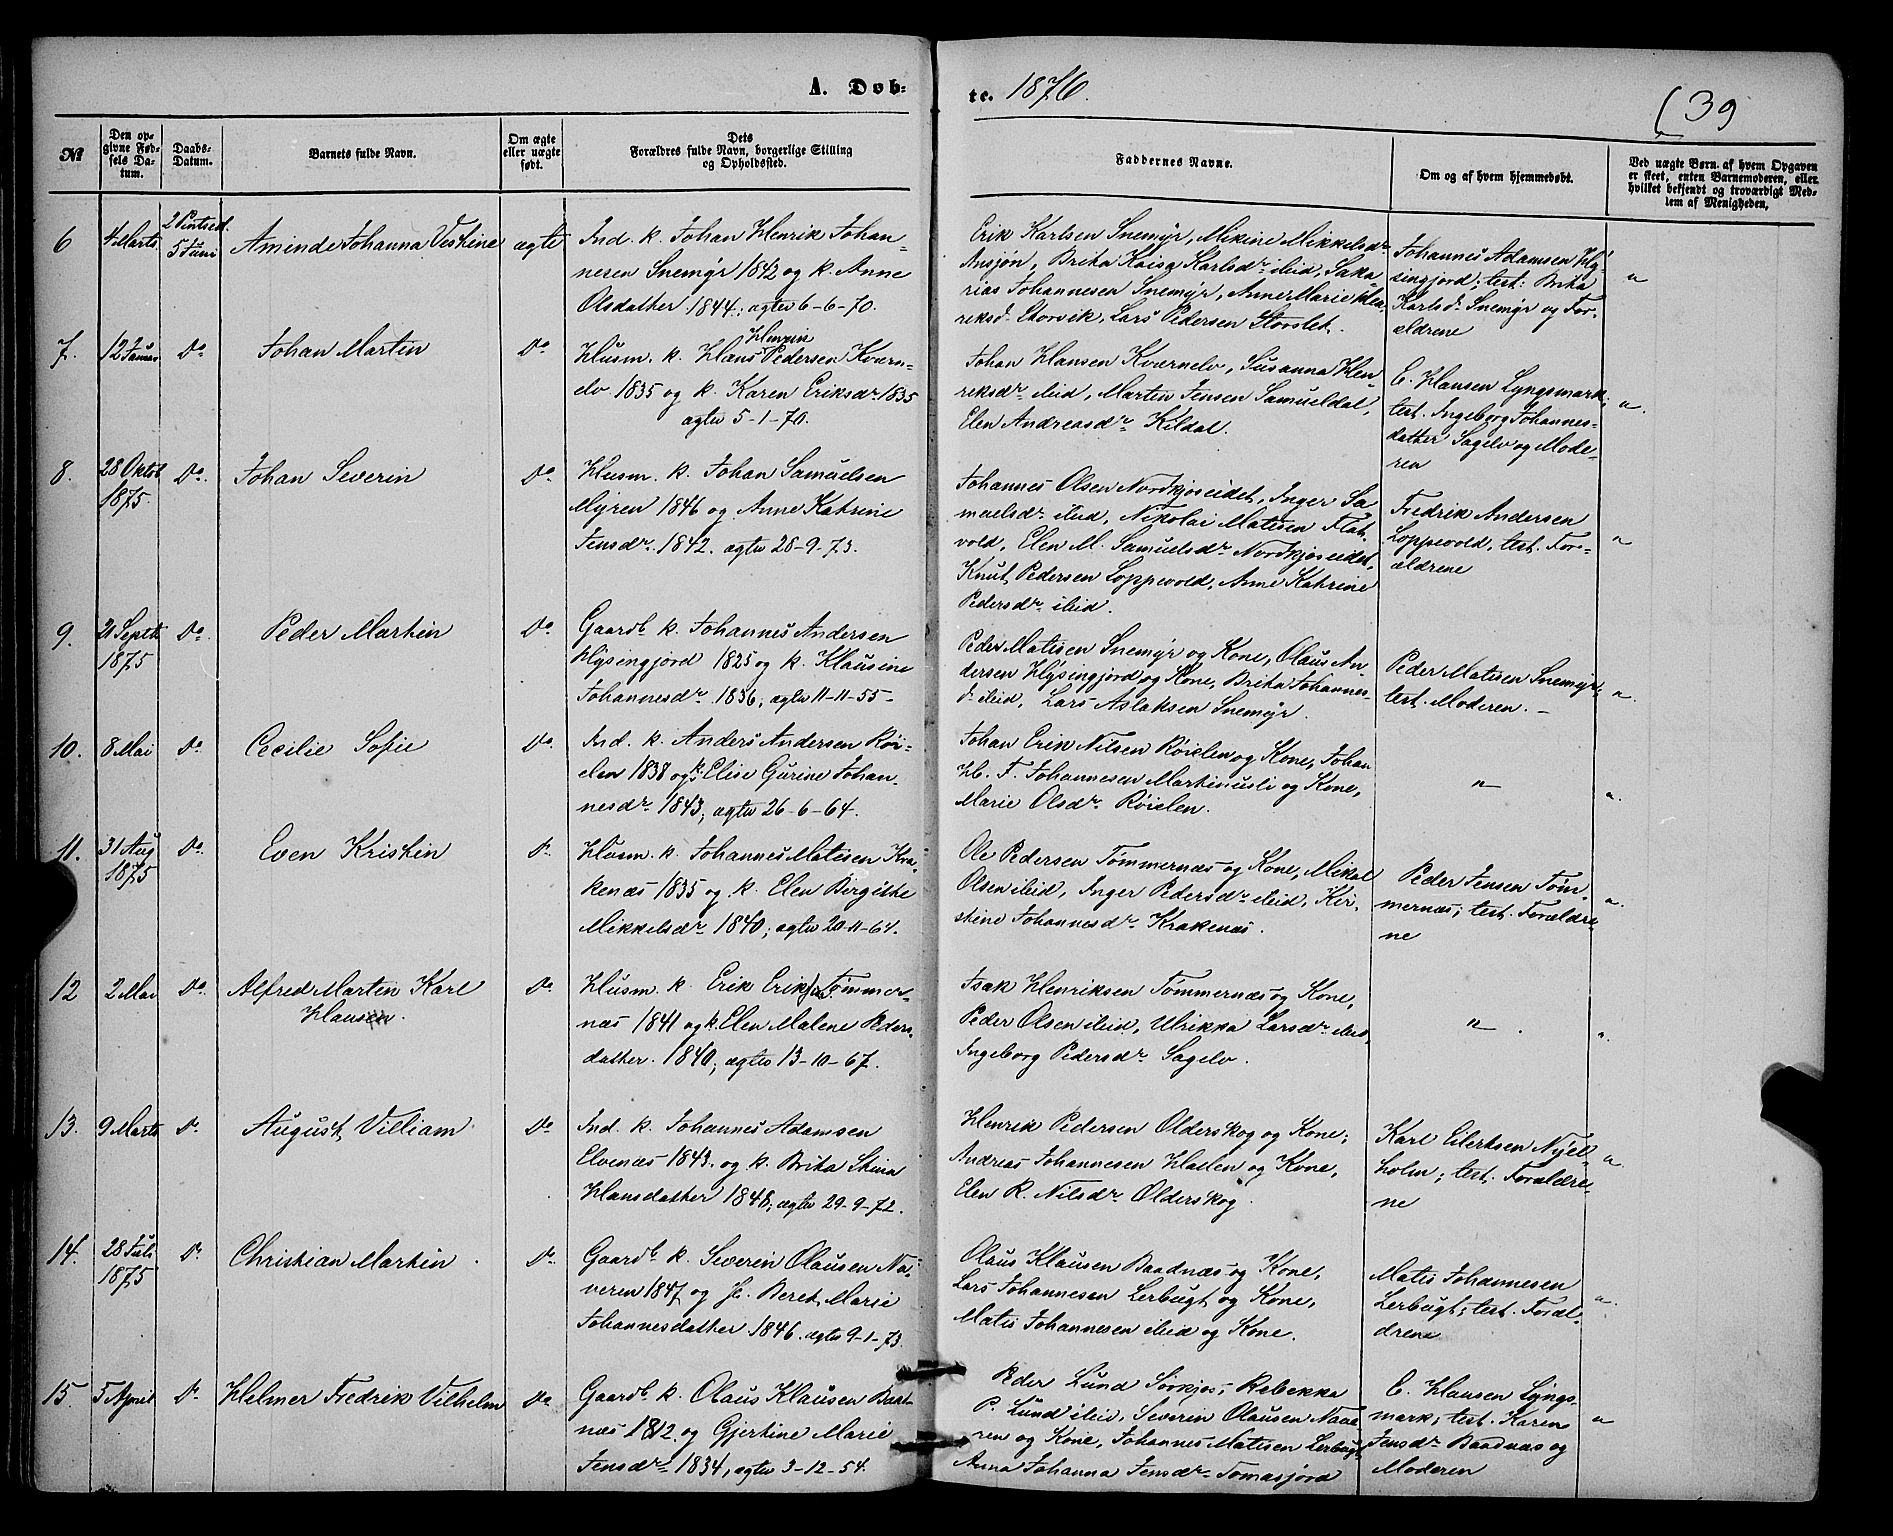 A. Døb-
te. 1876.
39
No
Den op-
givne Fød-
sels Da-
tum.
Daabs-
Datum.
Barnets fulde Navn.
Om ægte
eller uægte
født.
Dets
Forældres fulde Navn, borgerlige Stilling
og Opholdssted.
Faddernes Navne.
Om og af hvem hjemmedøbt.
Ved uægte Børn, af hvem Opgaven
er skeet, enten Barnemoderen, eller
hvilket bekjendt og troværdigt Med-
lem af Menigheden.
6
4 Marts
2 Pintsed.
5 Juni
Aminde Johanna Vestine
ægte
Ind. k. Johan Henrik Johan-
nesen Snemyr 1842 og k. Anne
Olsdatter 1844; ægtev 6-6-70.
Erik Karlsen Snemyr, Mikine Mikkelsdr
Ansjøn, Brita Kaisa Karlsdr ibid, Saka-
rias Johannesen Snemyr, Anne Marie Hen-
riksd. Storvik, Lars Pedersen Storslet.
Johannes Adamsen Hy-
singjord; test: Brita
Karlsd. Snemyr og For-
ældrene
"
7.
12 Januar
Do
Johan Martin
Do
Husm. k. Hans Henrin Pedersen Kvern-
elv 1835 og k. Karen Eriksdr 1835
ægtev 5-1-70.
Johan Hansen Kvernelv, Susanna Hen-
riksdr ibid, Marten Jensen Samueldal,
Elen Andreasdr Kildal.
C. Hansen Lyngsmark,
test. Ingeborg Johannes-
datter Sagelv og Mode-
ren
"
8.
28 Oktob
1875.
Do.
Johan Severin
Do
Husm. k. Johan Samuelsen
Myren 1846 og Anne Katrine
Jensdr. 1842. ægtev 28-9-73.
Johannes Olsen Nordkjoseidet, Inger Sa-
muelsdr ibid, Nikolai Matisen Flat-
vold, Elen M. Samuelsdr Nordkjoseidet,
Knut Pedersen Loppevold, Anne Katrine
Pedersdr ibid.
Fredrik Andersen
Loppevold, test. For-
ældrene
"
9.
21 Septb.
1875
Do.
Peder Martin
Do
Gaardb. k. Johannes Andersen
Hysingjord 1825 og k. Klausine
Johannesdr 1836, ægtev 11-11-55-
Peder Matisen Snemyr og Kone, Olaus An-
dersen Hysingjord og Kone, Brita Johannes-
d. ibid, Lars Aslaksen Snemyr.
Peder Matisen Snemyr,
test. Moderen. -
"
10.
8 Mai
Do
Cecilie Sofie
Do.
Ind. k. Anders Andersen Røi-
elen 1838 og k. Elise Gurine Johan-
nesdr 1843, ægtev 26-6-64.
Johan Erik Nilsen Røielen og Kone, Johan
H. F. Johannesen Markinusli og Kone,
Marie Olsdr Røielen.
"
"
11.
31 Aug
1875
Do.
Even Kristin
Do
Husm. k. Johannes Matisen Kra-
kenæs 1835 og k. Elen Bergitte
Mikkelsdr 1840; ægtev 20-11-64.
Ole Pedersen Tømmernæs og Kone, Mikal
Olsen ibid, Inger Pedersdr ibid, Kir-
stine Johannesdr Krakenæs.
Peder Jensen Tøm-
mernæs; test. Forældre-
ne
"
12
2 Mai
Do.
Alfred Marten Karl
Hansen.
Do
Husm. k. Erik Eriksen Tømmer-
næs 1841 og k. Elen Malene Peders-
datter. 1840; ægtev 13-10-67.
Isak Henriksen Tømmernæs og Kone,
Peder Olsen ibid, Ulrikka Larsdr ibid,
Ingeborg Pedersdr Sagelv.
"
"
13.
9 Marts
Do.
August Villiam
Do
Ind. k. Johannes Adamsen
Elvenæs 1843. og k. Brita Stina
Hansdatter 1848, ægtev 29-9-72.
Henrik Pedersen Olderskog og Kone;
Andreas Johannesen Hælen og Kone,
Elen K. Nilsdr Olderskog.
Karl Eilertsen Nyel-
holm; test. Forældre-
ne
"
14.
28 Juli
1875
Do
Christian Martin
Do.
Gaardb. k. Severin Olausen Na-
veren 1847 og k. Beret Marie
Johannesdatter 1846. ægtev 9-1-73.
Olaus Klausen Baadnæs og Kone,
Lars Johannesen Lerbugt og Kone,
Matis Johannesen ibid og Kone.
Matis Johannesen
Lerbugt; test. Foræl-
drene
"
15.
5 April
Do
Helmer Fredrik Vilhelm
Do
Gaardb. k. Olaus Klausen Baad-
næs 1812. og Gjertine Marie
Jensdr 1834, ægtev 3-12-54.
Peder Lund Sørkjos; Rebekka
P. Lund ibid, Severin Olausen Nave-
ren og Kone, Johannes Matisen Lerbugt,
Anna Johanna Jensdr Tomasjord
C. Hansen Lyngs-
mark; test. Karen
Jensdr Baadnæs og
Moderen
"